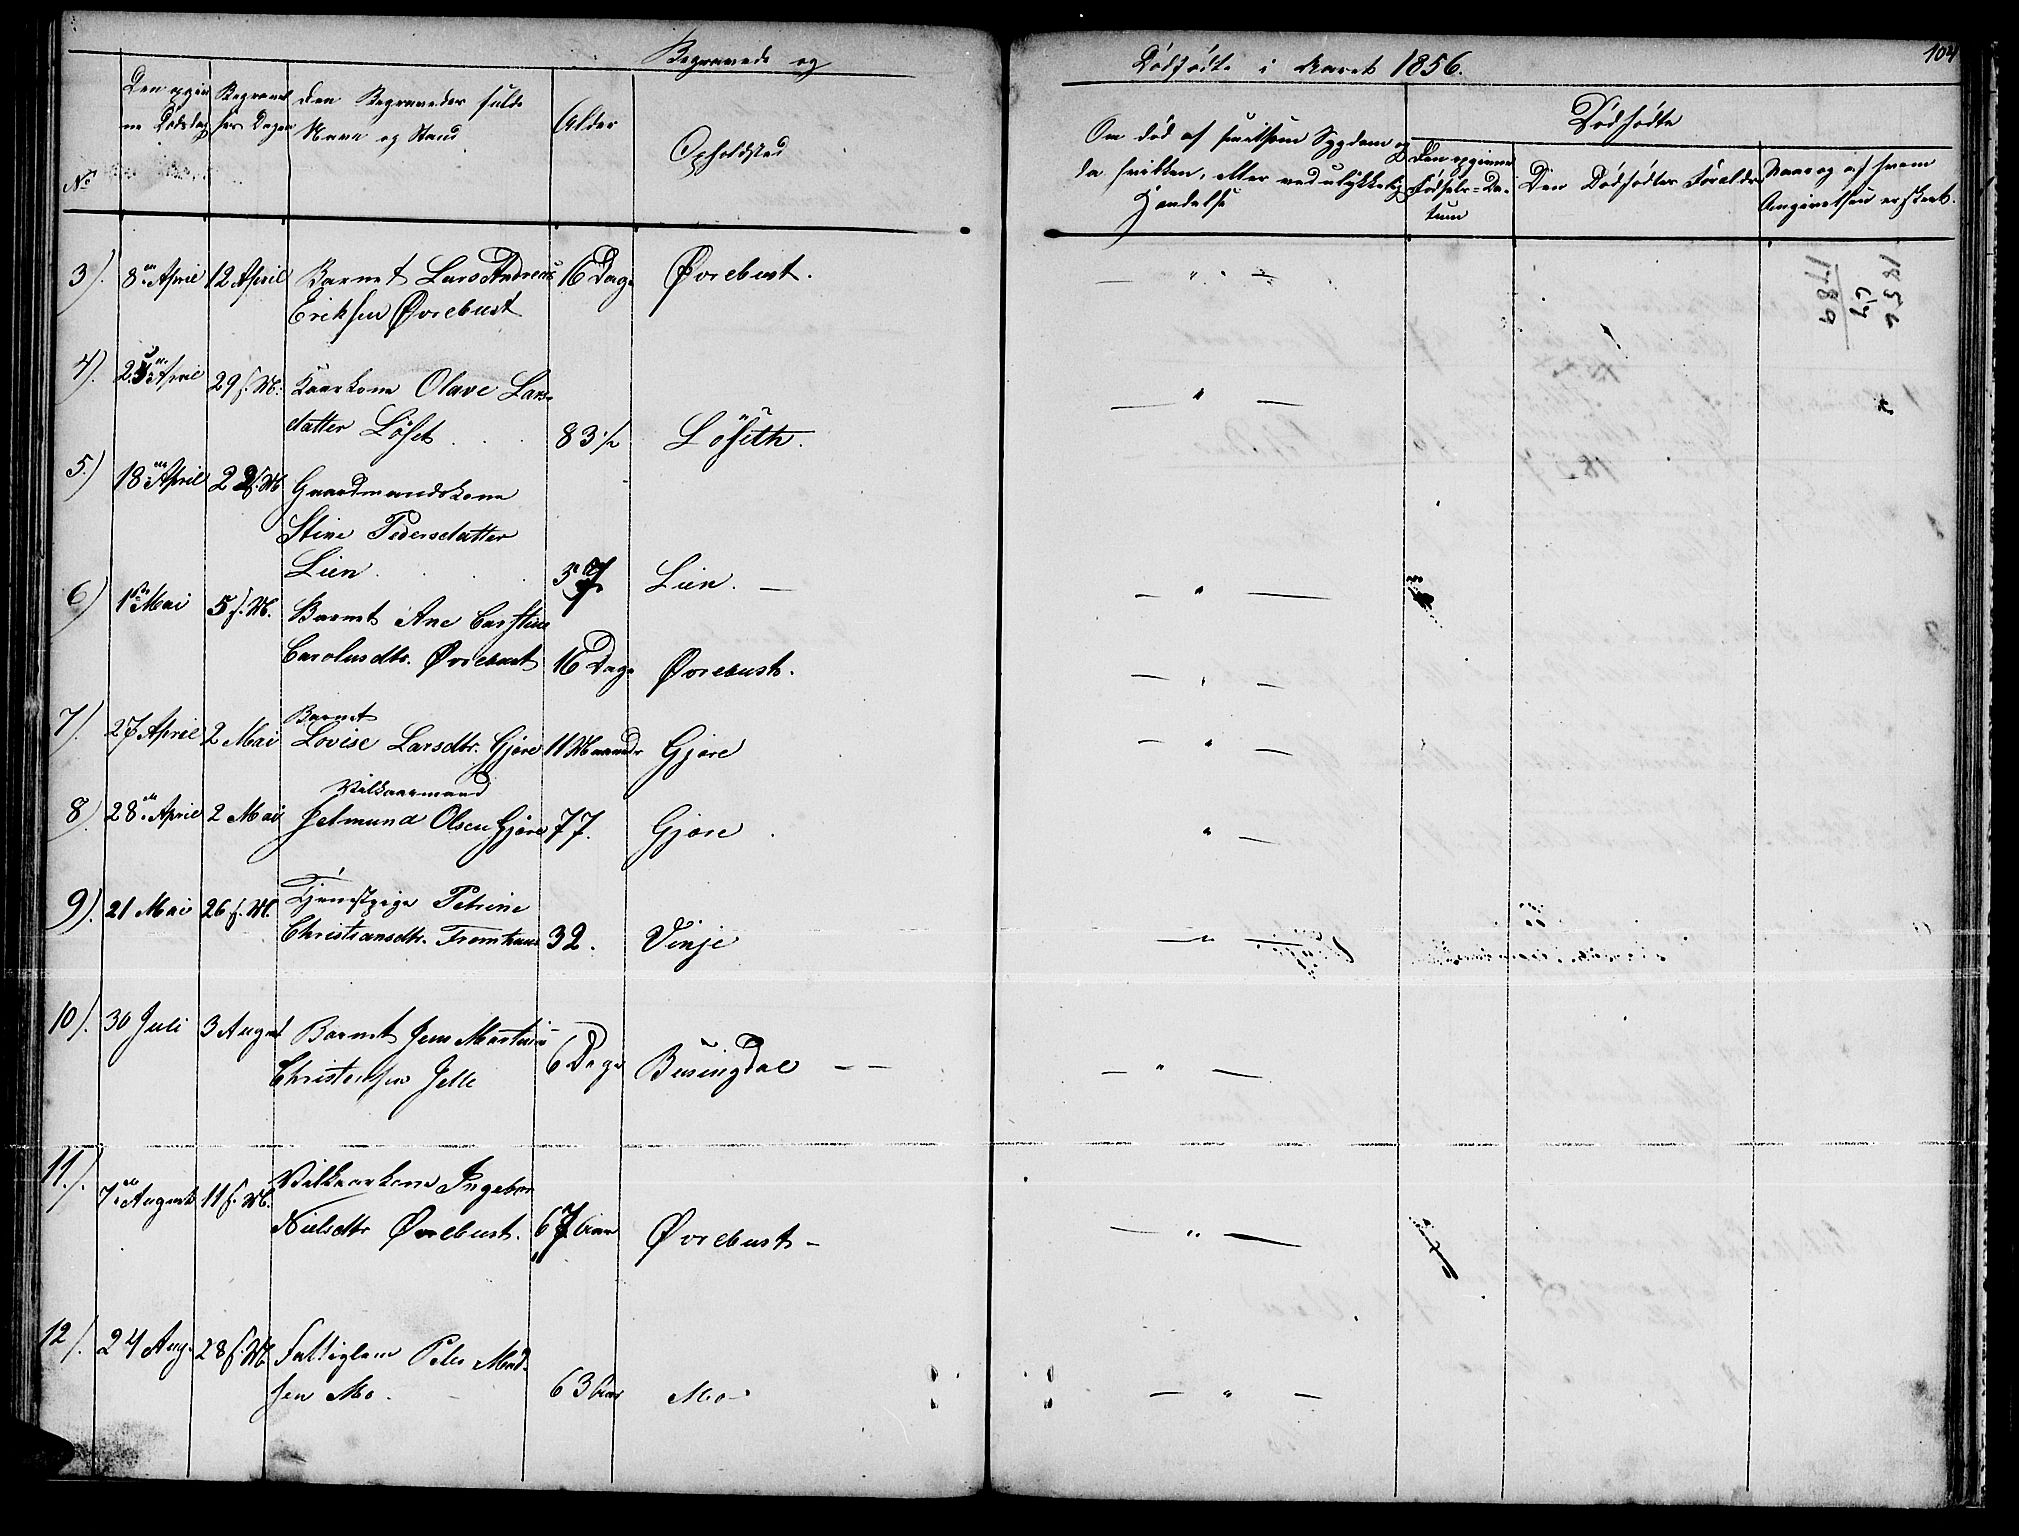 Begravede og
Dödfödte i Aaret 1856.
104
Den opgivne Dödsdag
Begravelses Dagen
Den Begravedes fulde Navn og Stand
Alder
Opholdsted
Om död af smitsom Sygdom og da hvilken, eller ved ulykkelig Hændelse
Dödfödte
Den opgivne Födsels-Datum
Den Dödfödtes Forældre
Naar og af hvem Angivelsen er skeet.
No
3). 8de April 12 April Barnet Lars Andreas 16 Dage Øvrebust. — " —
Eriksen Øvrebust
1856
67
1789
4). April 29 f. M. Kaarkone Olave Lars-
datter Löset 83 1/2 Löseth. — " —
5.) 18de April 22 f. M. Gaardmandskone
Stine Pedersdatter
Lien. 37 Lien. — " —
6) 1ste Mai 5 f. M. Barnet Ane Carstine
Carolusdtr. Øvrebust 16 Dage Øvrebust. — " —
7). 27 April 2 Mai Barnet
Lovise Larsdtr. Gjøre 11 Maaneder Gjøre — " —
8) 28de April 2 Mai Vilkaarmand
Jetmund Olsen Gjøre 77. Gjøre " —
9). 21 Mai 26 f. M. Tjenestpige Petrine
Christiansdtr. Fremhuus 32. Vinje — " —
10). 30 Juli 3 August Barnet Jens Martin
Christensen Jelle 6 Dage Busingdal — " —
11.). 7de August 11 f. M. Vilkaarkone Ingebor
Nielsdtr Øvrebust. 67 Aar Øvrebust — " —
12). 24 Aug. 28 f. M. Fattiglem Peder Mad-
sen Mo. 63 Aar Mo — " —